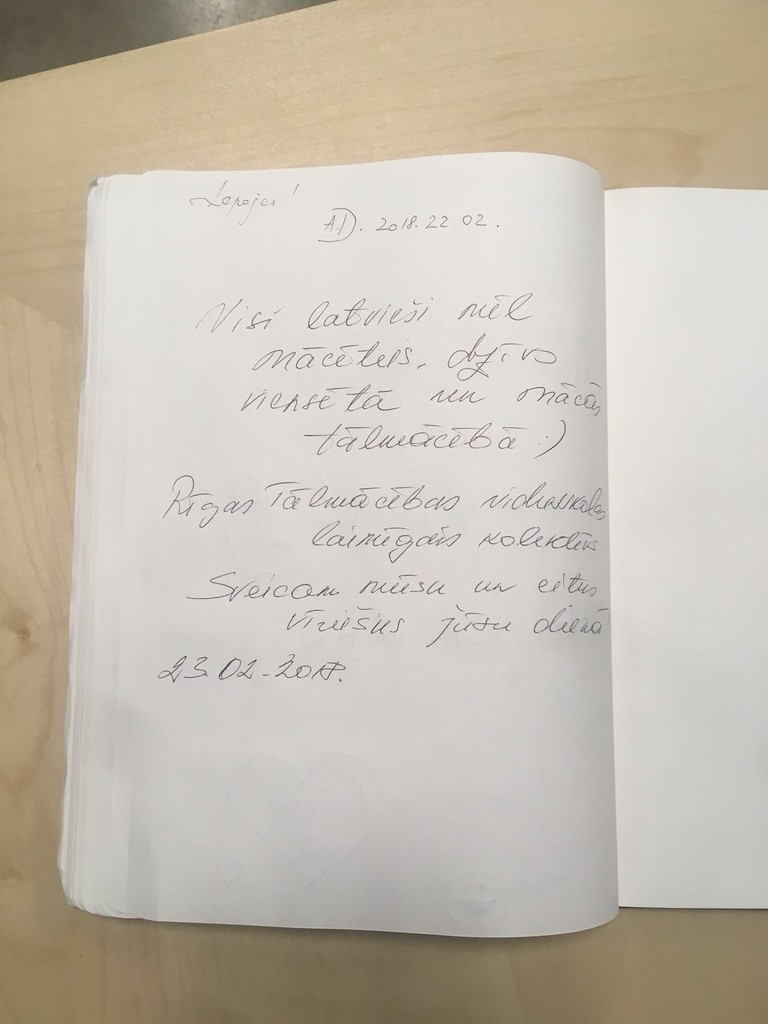 Lepojos!
A.D. 2018.22.02.
Visi latvieši mēl
mācēties, dzīvo
viensētā un mācās
tālmācībā :)
Rīgas Tālmācības vidusskolas
laimīgais kolektīvs
Sveicam mūsu un citus
vīriešus jūsu dienā!
23.02-2018.